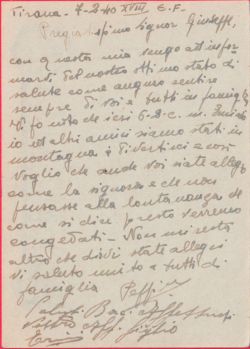 Tirana. 7-2-40 XVIII E.F.
Pregiatissimo Signor Giuseppe,
con questa mia vengo ad infor
marvi del nostro ottimo stato di
salute come auguro sentire
sempre di voi e tutti in famiglia
Vi fo noto che ieri 6.2.c.m.
io ed altri amici siamo stati in
montagna a divertirci e così
voglio che anche voi siate allegri
come la signora e che non
pensasse alla lontananza che
come si dice presto verremo
congedati – Non mi resta
altro che dirvi state allegri
Vi saluto unito a tutti di
famiglia Peppino
Saluti Baci Affettuosi
Vostro aff. figlio